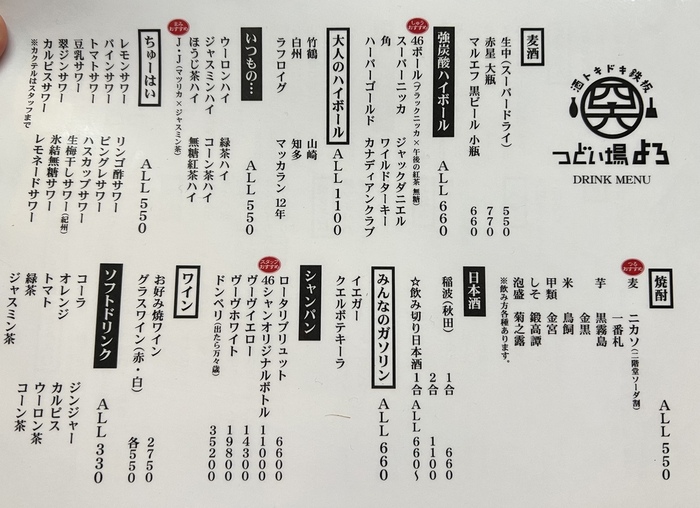 酒トキドキ鉄板
つどい場よろ
DRINK MENU
麦酒
生中(スーパードライ) 550
赤星 大瓶 770
マルエフ 黒ビール 小瓶 660
強炭酸ハイボール ALL 660
しゅうおすすめ
46ボール(ブラックニッカ×午後の紅茶 無糖)
スーパーニッカ ジャックダニエル
角 ワイルドターキー
ハーパーゴールド カナディアンクラブ
大人のハイボール ALL 1100
竹鶴 山崎
白州 知多
ラフロイグ マッカラン 12年
いつもの… ALL 550
ウーロンハイ 緑茶ハイ
ジャスミンハイ コーン茶ハイ
ほうじ茶ハイ 無糖紅茶ハイ
おすすめ
J・J(マッリカ×ジャスミン茶)
ちゅーはい ALL 550
レモンサワー リンゴ酢サワー
パインサワー ピングレサワー
トマトサワー ハスカップサワー
豆乳サワー 生梅干しサワー(紀州)
翠ジンサワー 氷結無糖サワー
カルピスサワー レモネードサワー
※カクテルはスタッフまで
焼酎 ALL 550
つるおすすめ
麦 ニカソ(二階堂ソーダ割)
一番札
芋 黒霧島
金黒
米 鳥飼
甲類 金宮
しそ 鍛高譚
泡盛 菊之露
※飲み方各種あります。
日本酒
稲波(秋田) 1合 660
2合 1100
☆飲み切り日本酒 1合 ALL 660〜
みんなのガソリン ALL 660
イエガー
クエルボテキーラ
シャンパン
ロータリブリュット 6600
スタッフおすすめ
46シャンオリジナルボトル 11000
ヴーヴイエロー 14300
ヴーヴホワイト 19800
ドンペリ(出たら万々歳) 35200
ワイン
お好み焼ワイン 2750
グラスワイン(赤・白) 各550
ソフトドリンク ALL 330
コーラ ジンジャー
オレンジ カルピス
トマト ウーロン茶
緑茶 コーン茶
ジャスミン茶